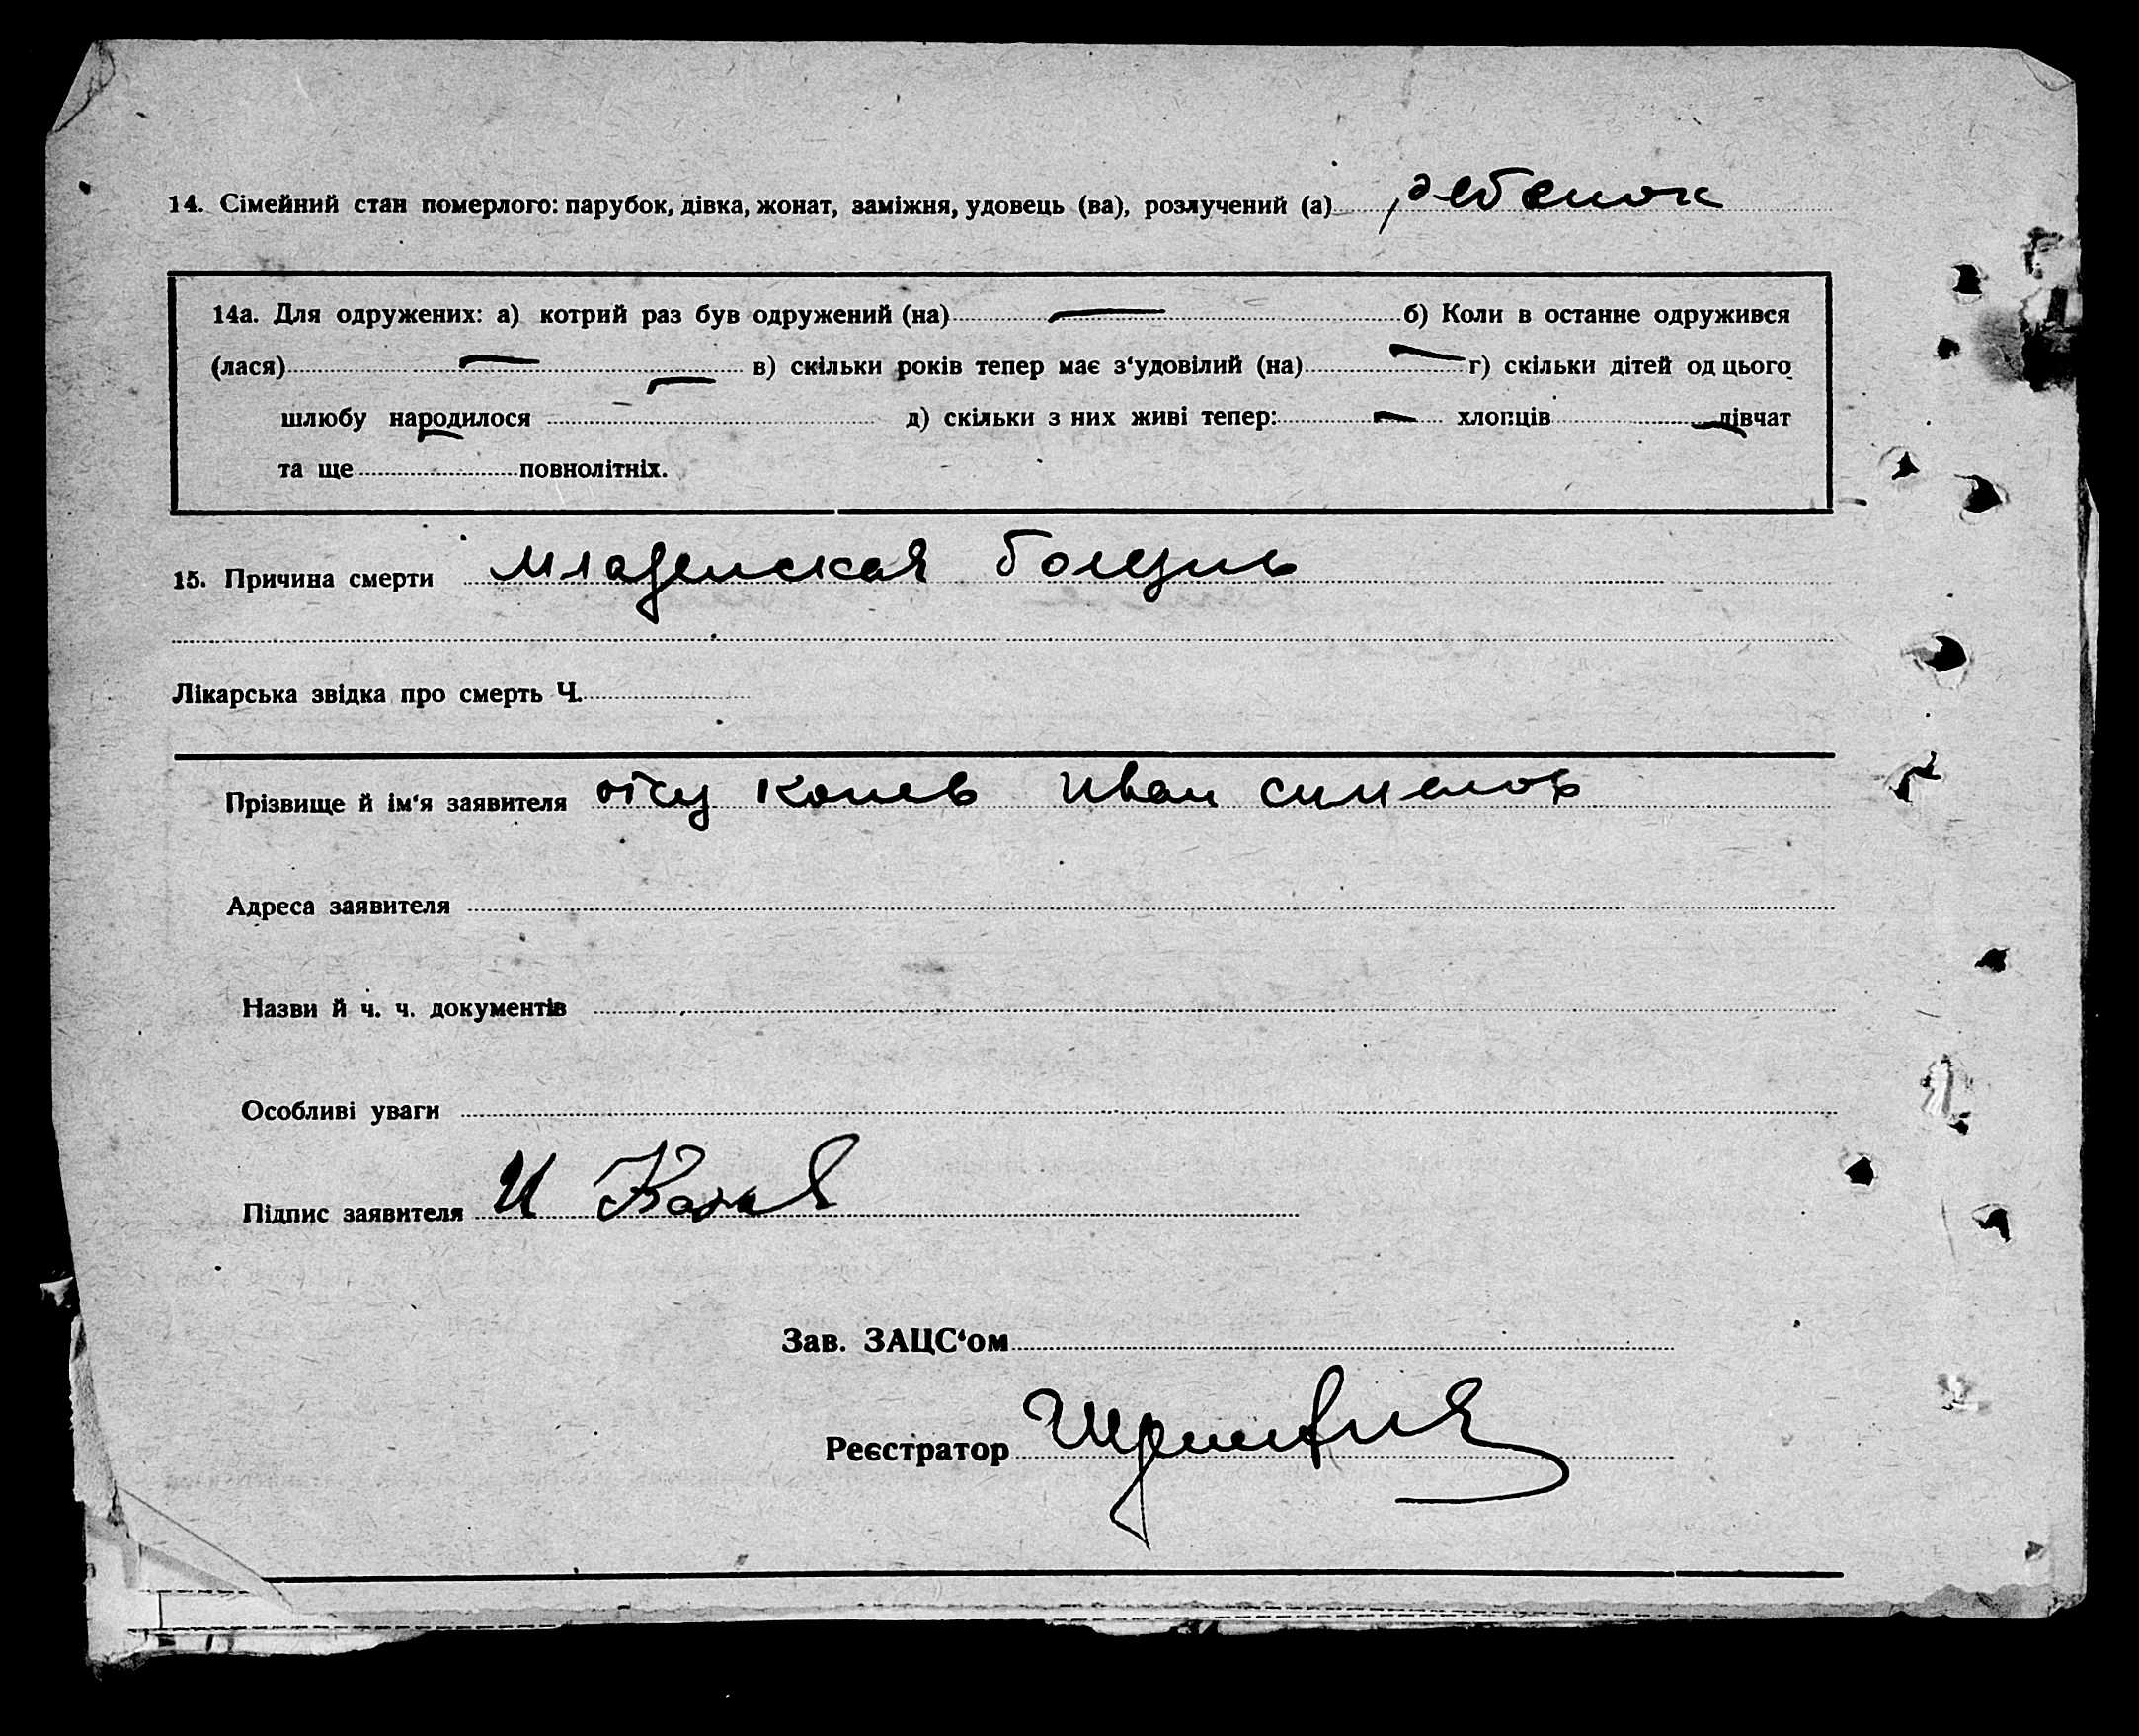 14. Сімейний стан померлого: парубок, дівка, жонат, заміжня, удовець (ва), розлучений (а) ребенок
14а. Для одружених: а) котрий раз був одружений (на) — б) Коли в останне одружився
(лася) — в) скільки років тепер має з‘удовілий (на) — г) скільки дітей од цього
шлюбу народилося — д) скільки з них живі тепер: — хлопців — дівчат
та ще — повнолітніх.
15. Причина смерти младенская болезнь
Лікарська звідка про смерть Ч.
Прізвище й ім‘я заявителя Иван
Адреса заявителя
Назви й ч. ч. документів
Особливі уваги
Підпис заявителя И
Зав. ЗАЦС‘ом
Реєстратор